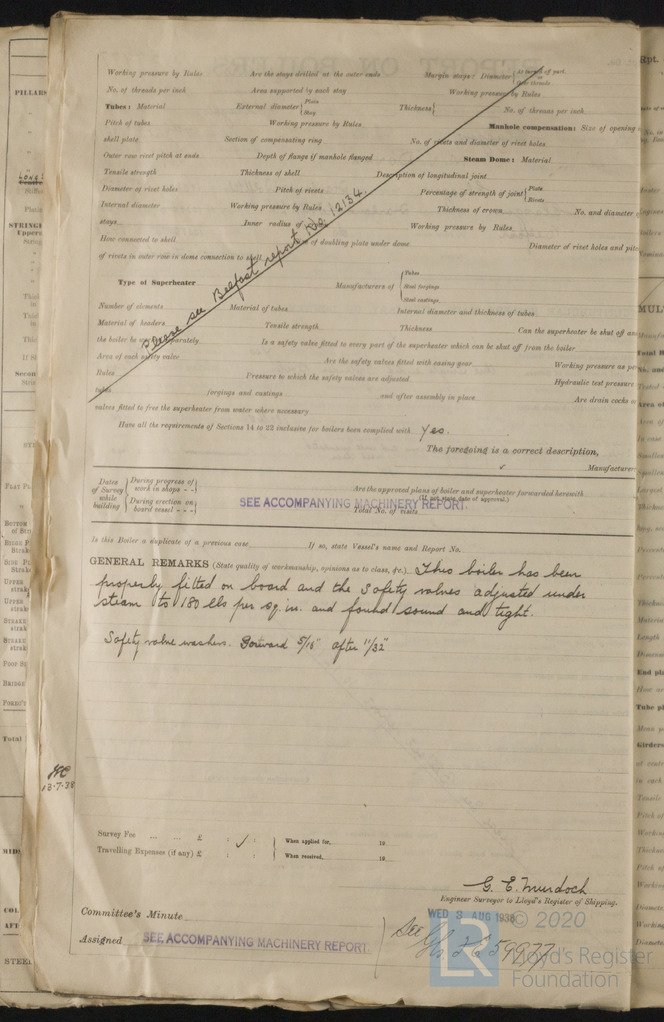 Working pressure by Rules Are the stays drilled at the outer ends Margin stays: Diameter { At turned off part, or Over threads
No. of threads per inch Area supported by each stay Working pressure by Rules
Tubes: Material External diameter { Plain Stay Thickness { No. of threads per inch
Pitch of tubes Working pressure by Rules Manhole compensation: Size of opening
shell plate Section of compensating ring No. of rivets and diameter of rivet holes
Outer row rivet pitch at ends Depth of flange if manhole flanged Steam Dome: Material
Tensile strength Thickness of shell Description of longitudinal joint
Diameter of rivet holes Pitch of rivets Percentage of strength of joint { Plate Rivets
Internal diameter Working pressure by Rules Thickness of crown No. and diameter
stays Inner radius of Working pressure by Rules
How connected to shell of doubling plate under dome Diameter of rivet holes and
of rivets in outer row in dome connection to shell
Please see Belfast report No. 12134.
Type of Superheater Manufacturers of { Tubes Steel forgings Steel castings
Number of elements Material of tubes Internal diameter and thickness of tubes
Material of headers Tensile strength Thickness Can the superheater be shut off
the boiler be separately Is a safety valve fitted to every part of the superheater which can be shut off from the boiler
Area of each safety valve Are the safety valves fitted with easing gear Working pressure as
Rules Pressure to which the safety valves are adjusted Hydraulic test pressure
tubes forgings and castings and after assembly in place Are drain cocks
valves fitted to free the superheater from water where necessary
Have all the requirements of Sections 14 to 22 inclusive for boilers been complied with Yes.
The foregoing is a correct description,
Manufacturer
Dates of Survey while building { During progress of work in shops - - { Are the approved plans of boiler and superheater forwarded herewith
(If not state date of approval.)
During erection on board vessel - - - Total No. of visits
SEE ACCOMPANYING MACHINERY REPORT.
Is this Boiler a duplicate of a previous case If so, state Vessel's name and Report No.
GENERAL REMARKS (State quality of workmanship, opinions as to class, &c.) This boiler has been
properly fitted on board and the safety valves adjusted under
steam to 180 lbs per sq. in. and found sound and tight.
Safety valve washers. Forward 5/16" after 11/32"
18-7-38
Survey Fee ... ... £ : : When applied for, 19
Travelling Expenses (if any) £ : : When received, 19
G. E. Murdoch
Engineer Surveyor to Lloyd's Register of Shipping.
Committee's Minute WED 3 AUG 1938
Assigned SEE ACCOMPANYING MACHINERY REPORT.
See
© 2020
LR
Lloyd's Register
Foundation